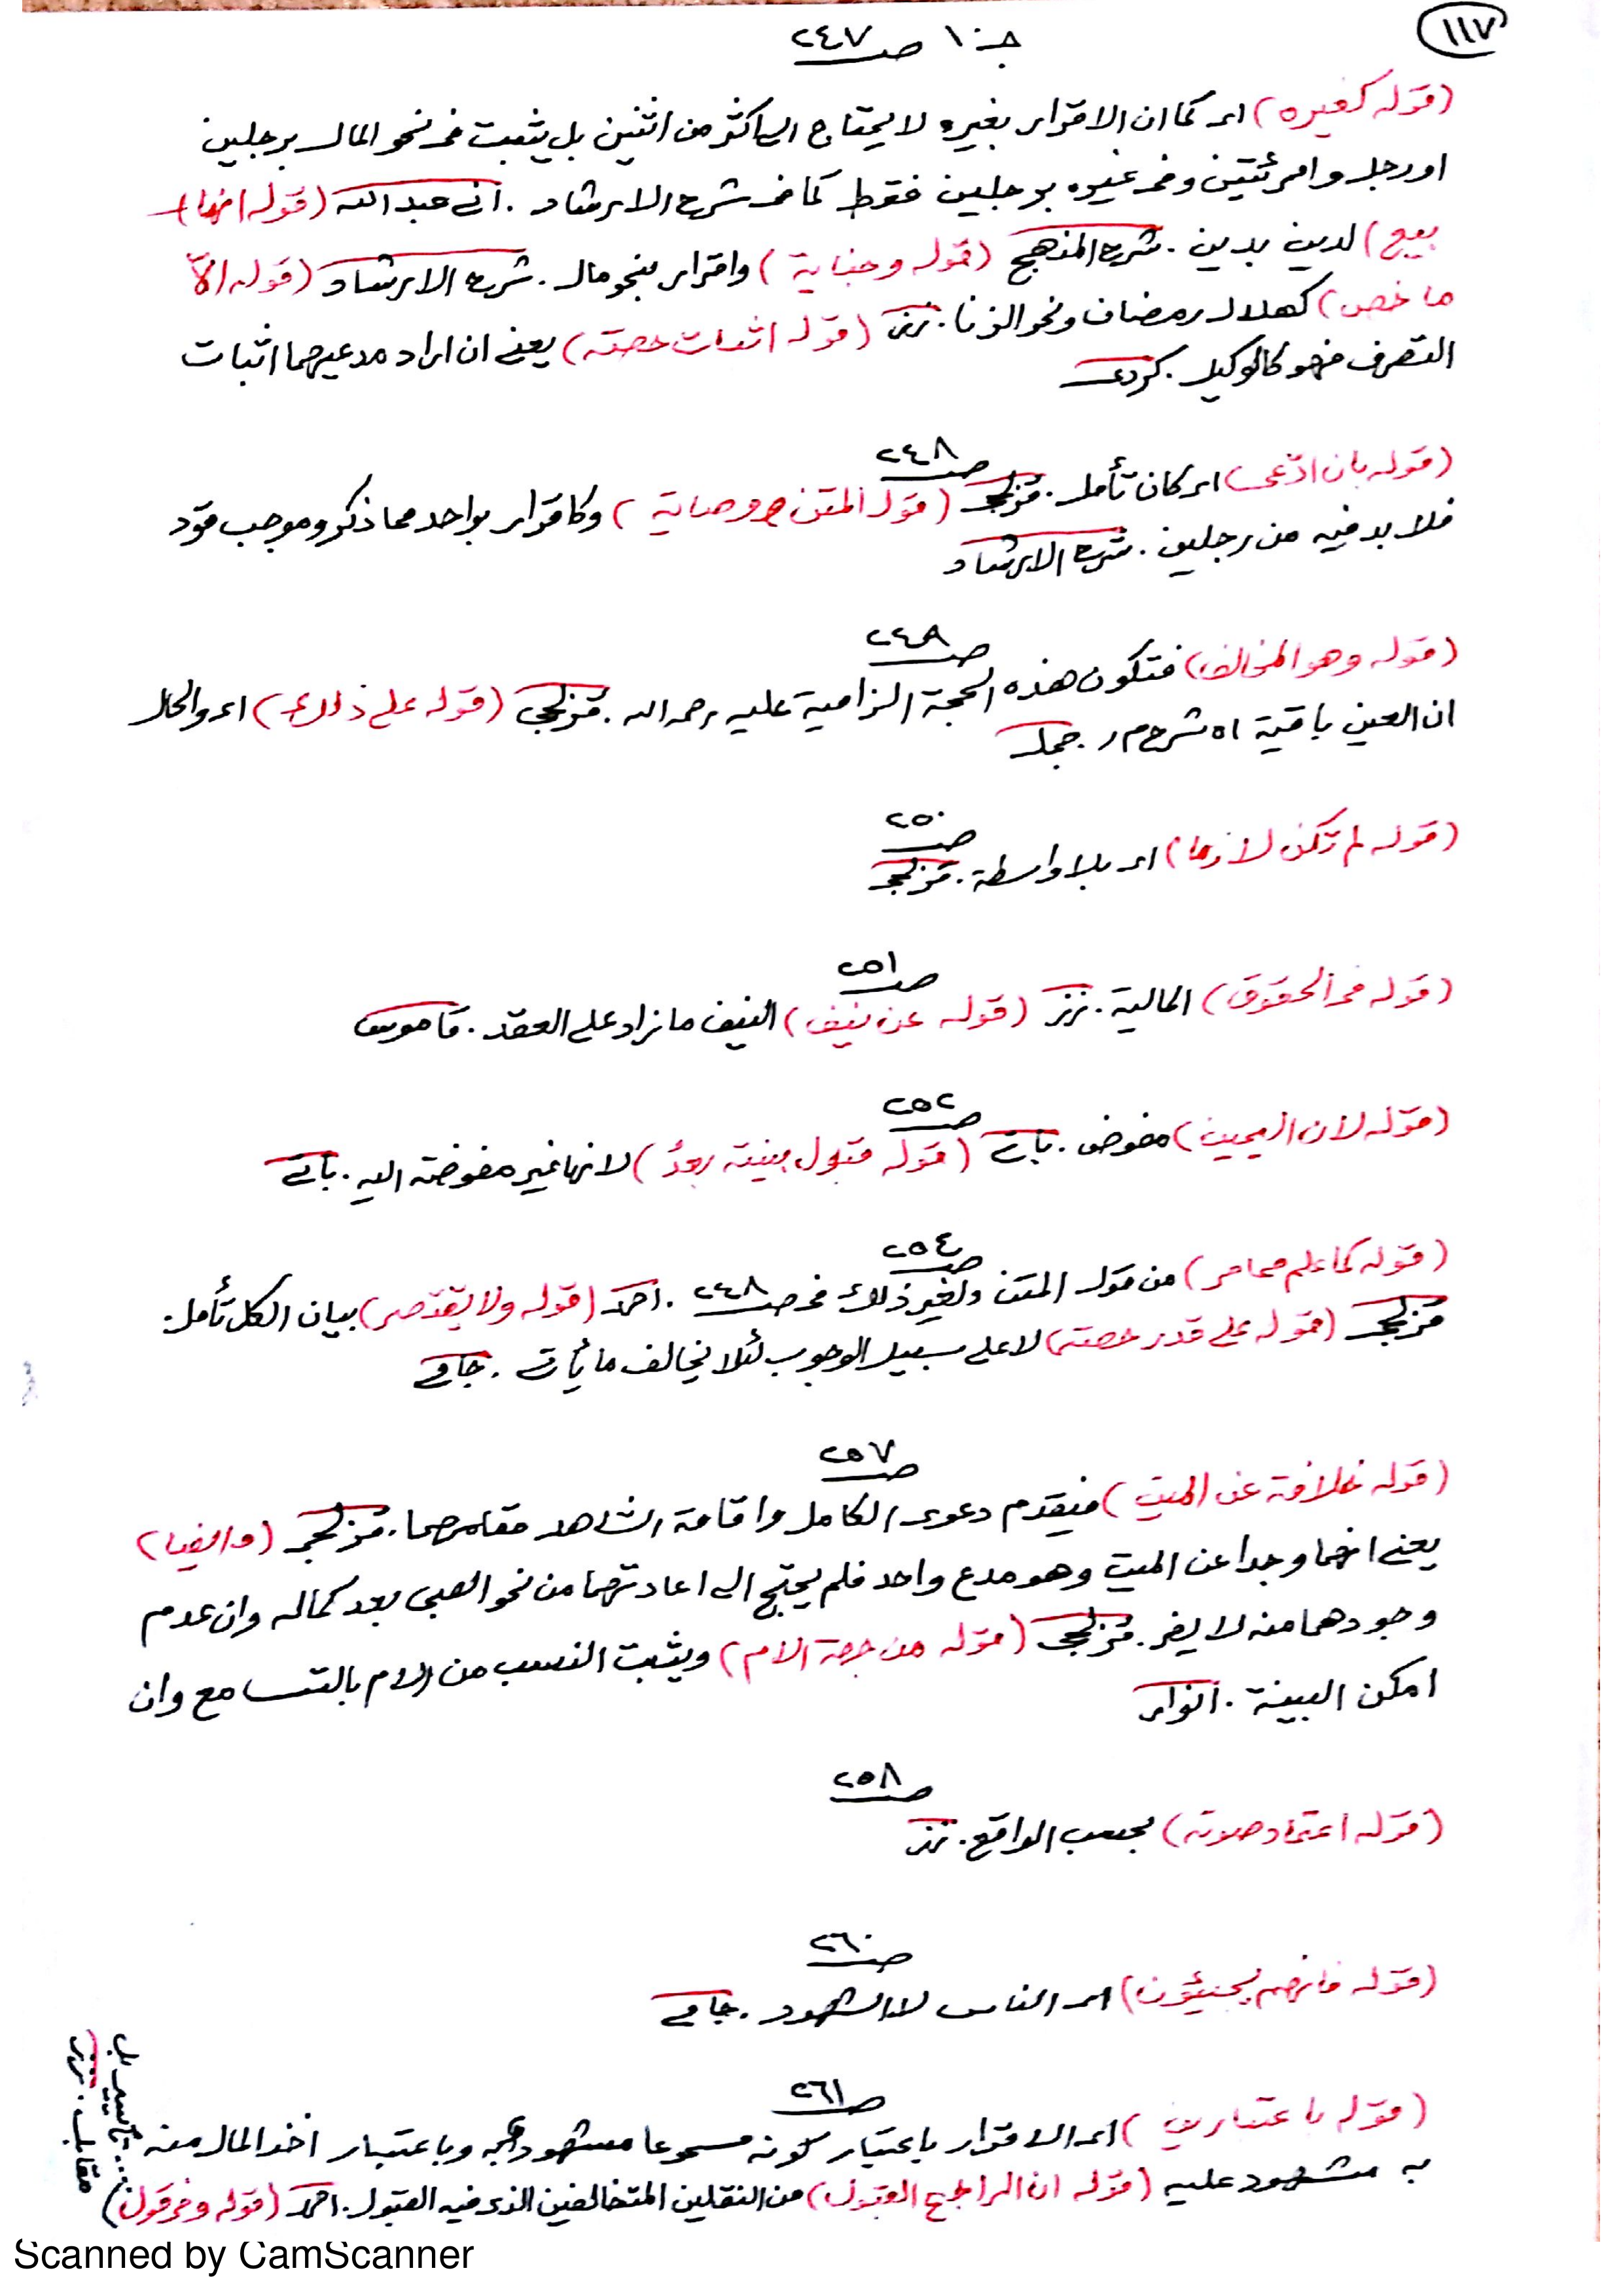 ١١٧
جـ ١٠ صـ ٢٤٧
(قوله كغيره) اى كما ان الاقرار بغيره لا يحتاج الى اكثر من اثنين بل يثبت فى نحو المال برجلين
او رجل وامرئتين وفى غيره برجلين فقط كما فى شرح الارشاد . عبد الله (قوله انها)
بيع) لدين بدين . شرح المنهج (قوله وجناية) واقرار بنحو مال . شرح الارشاد (قوله الا
ما خص) كهلال رمضان ونحو الزنا . (قوله اثبات حصته) يعنى ان اراد مدعيهما اثبات
التصرف فهو كالوكيل . كردى
صـ ٢٤٨
(قوله بان ادعى) اى كان تأمل . قزلجى (قول المتن ووصاية) وكاقرار بواحد مما ذكر وموجب قود
فلا بد فيه من رجلين . شرح الارشاد
صـ ٢٤٩
(قوله وهو المخالف) فتكون هذه الحجة الزامية عليه رحمه الله . قزلجى (قوله على ذلك) اى والحال
ان العين باقية اه شرح م ر . جمل
صـ ٢٥٠
(قوله لم تكن لازما) اى بلا واسطة . قزلجى
صـ ٢٥١
(قوله فى الحقوق) المالية . (قوله عن نيف) النيف ما زاد على العقد . قاموس
صـ ٢٥٢
(قوله لان اليمين) مفوض . (قوله قبول بينته بعد) لانها غير مفوضة اليه .
صـ ٢٥٤
(قوله كما علم مما مر) من قول المتن ولغير ذلك فى صـ ٢٤٨ . احمد (قوله ولا يقتصر) بيان الكل تأمل .
قزلجى (قوله على قدر حصته) لا على سبيل الوجوب لئلا يخالف ما يأتى .
صـ ٢٥٧
(قوله خلافة عن الميت) فيقدم دعوى الكامل واقامة الشاهد مقامهما . قزلجى (وايضا)
يعنى انهما وجدا عن الميت وهو مدع واحد فلم يحتج الى اعادتهما من نحو الصبى بعد كماله وان عدم
وجودهما منه لا يضر . قزلجى (قوله من جهة الام) ويثبت النسب من الام بالتسامع وان
امكن البينة . انوار
صـ ٢٥٨
(قوله اعتماد صوته) بحسب الواقع .
صـ ٢٦٠
(قوله فانهم يجيئون) اى الناس لا الشهود .
صـ ٢٦١
(قوله باعتبارين) اى الاقرار باعتبار كونه مسموعا مشهود به وباعتبار اخذ المال منه
به مشهود عليه (قوله ان الراجح القبول) من النقلين المتخالفين الذى فيه القبول . احمد (قوله وفى قول)
مقابل .
Scanned by CamScanner